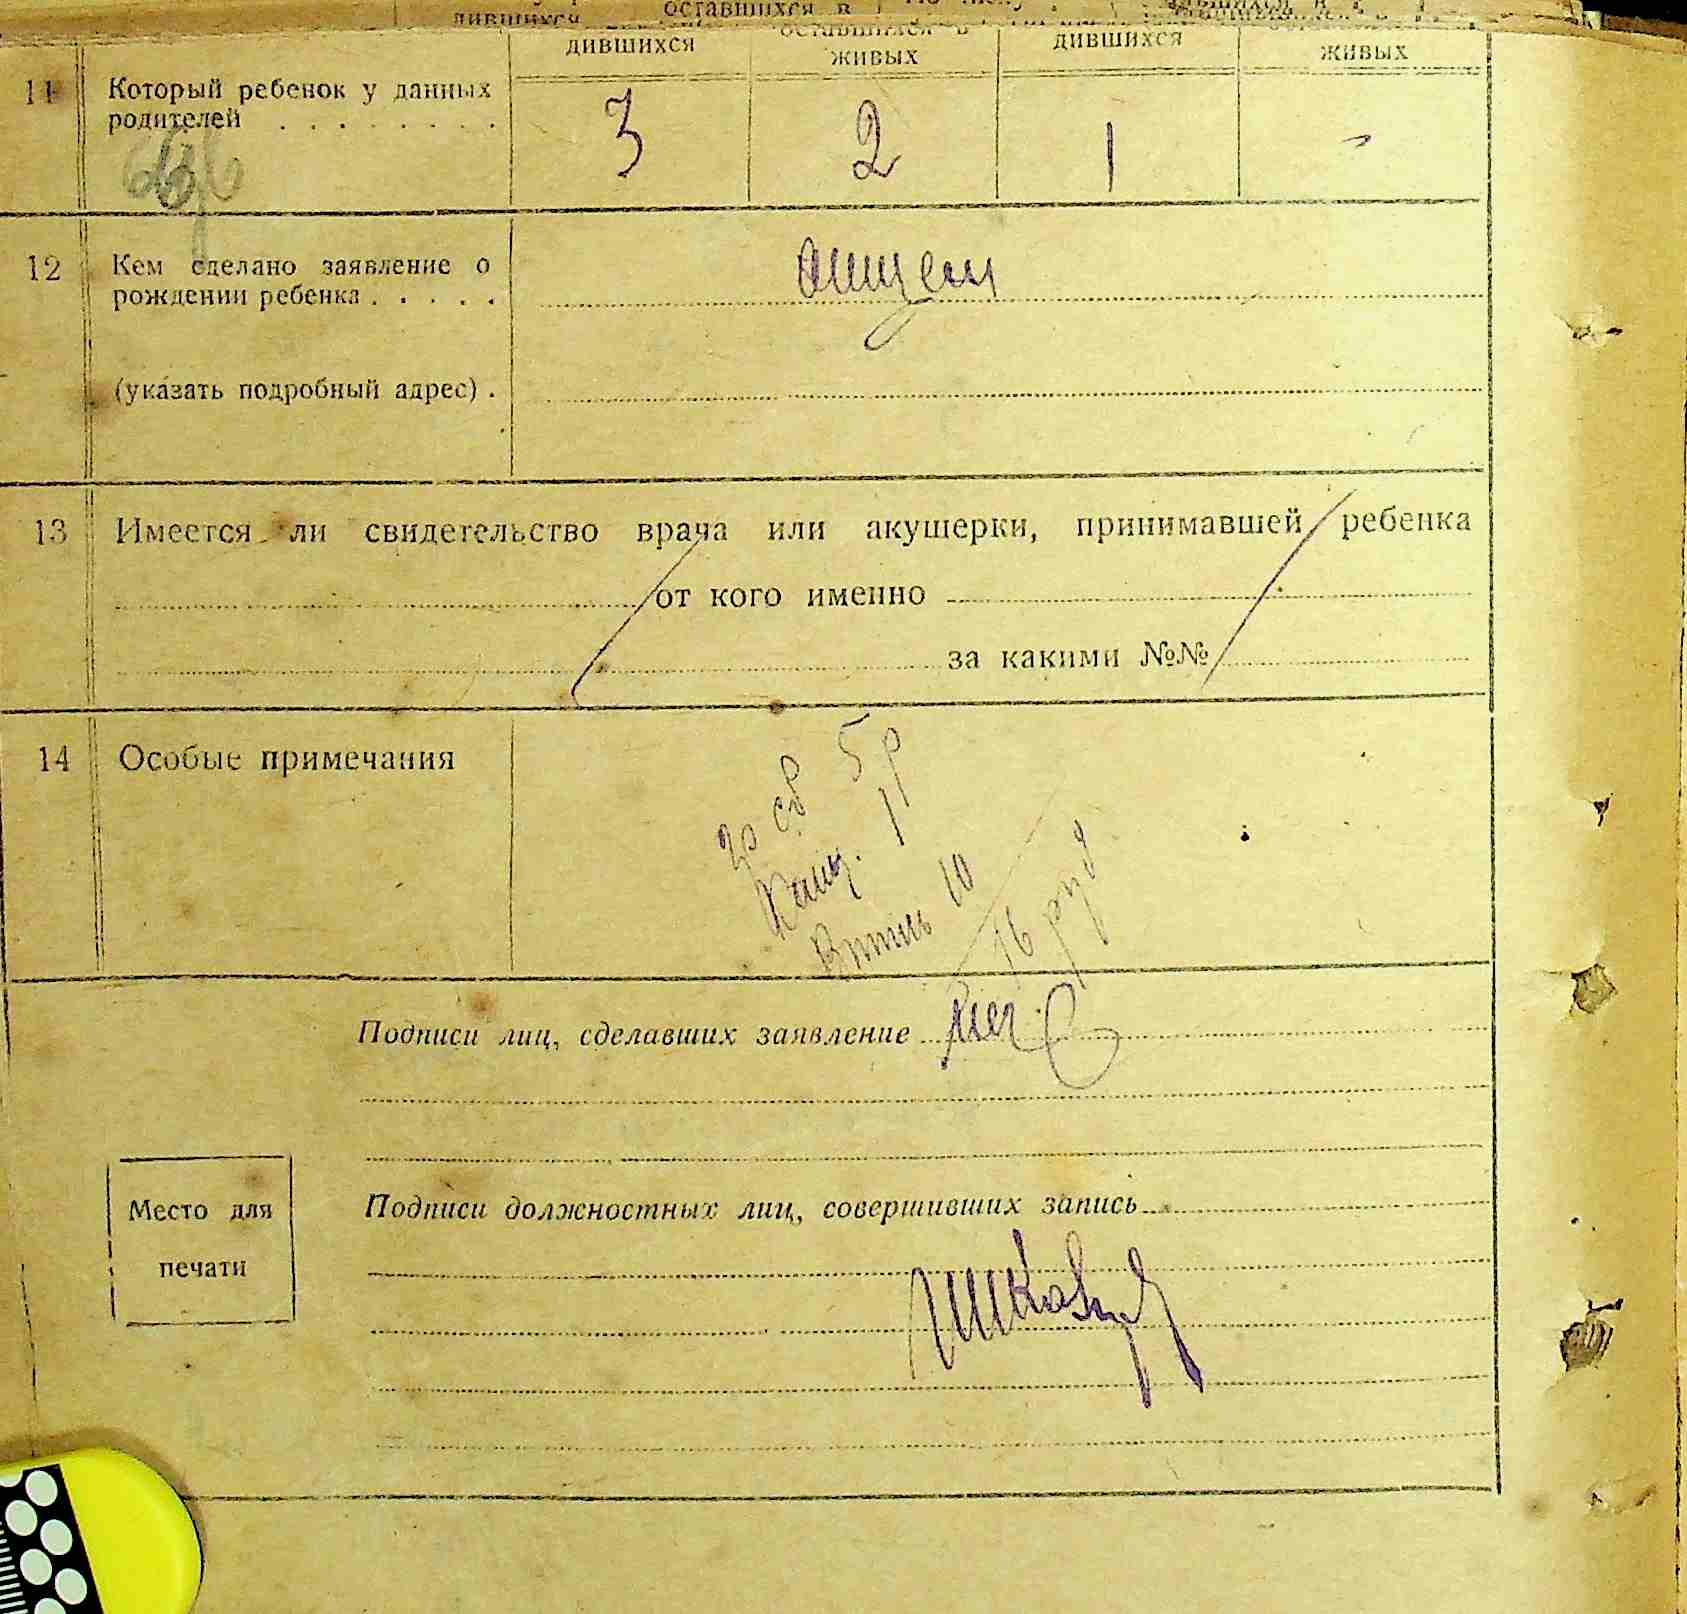 дившихся оставшихся в
дившихся оставшихся в живых дившихся живых
11 Который ребенок у данных
родителей . . . . . . . . 3 2 1 -
12 Кем сделано заявление о
рождении ребенка . . . . . отцем
(указать подробный адрес) .
13 Имеется ли свидетельство врача или акушерки, принимавшей ребенка
от кого именно
за какими №№
14 Особые примечания
за св 5 р
Канц. 1 р
10
16 руб
Подписи лиц, сделавших заявление
Подписи должностных лиц, совершивших запись
Место для
печати